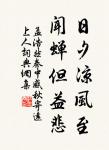 日夕涼風至
聞蟬但益悲
孟浩然秦中感秋寄遠
上人詞典網集